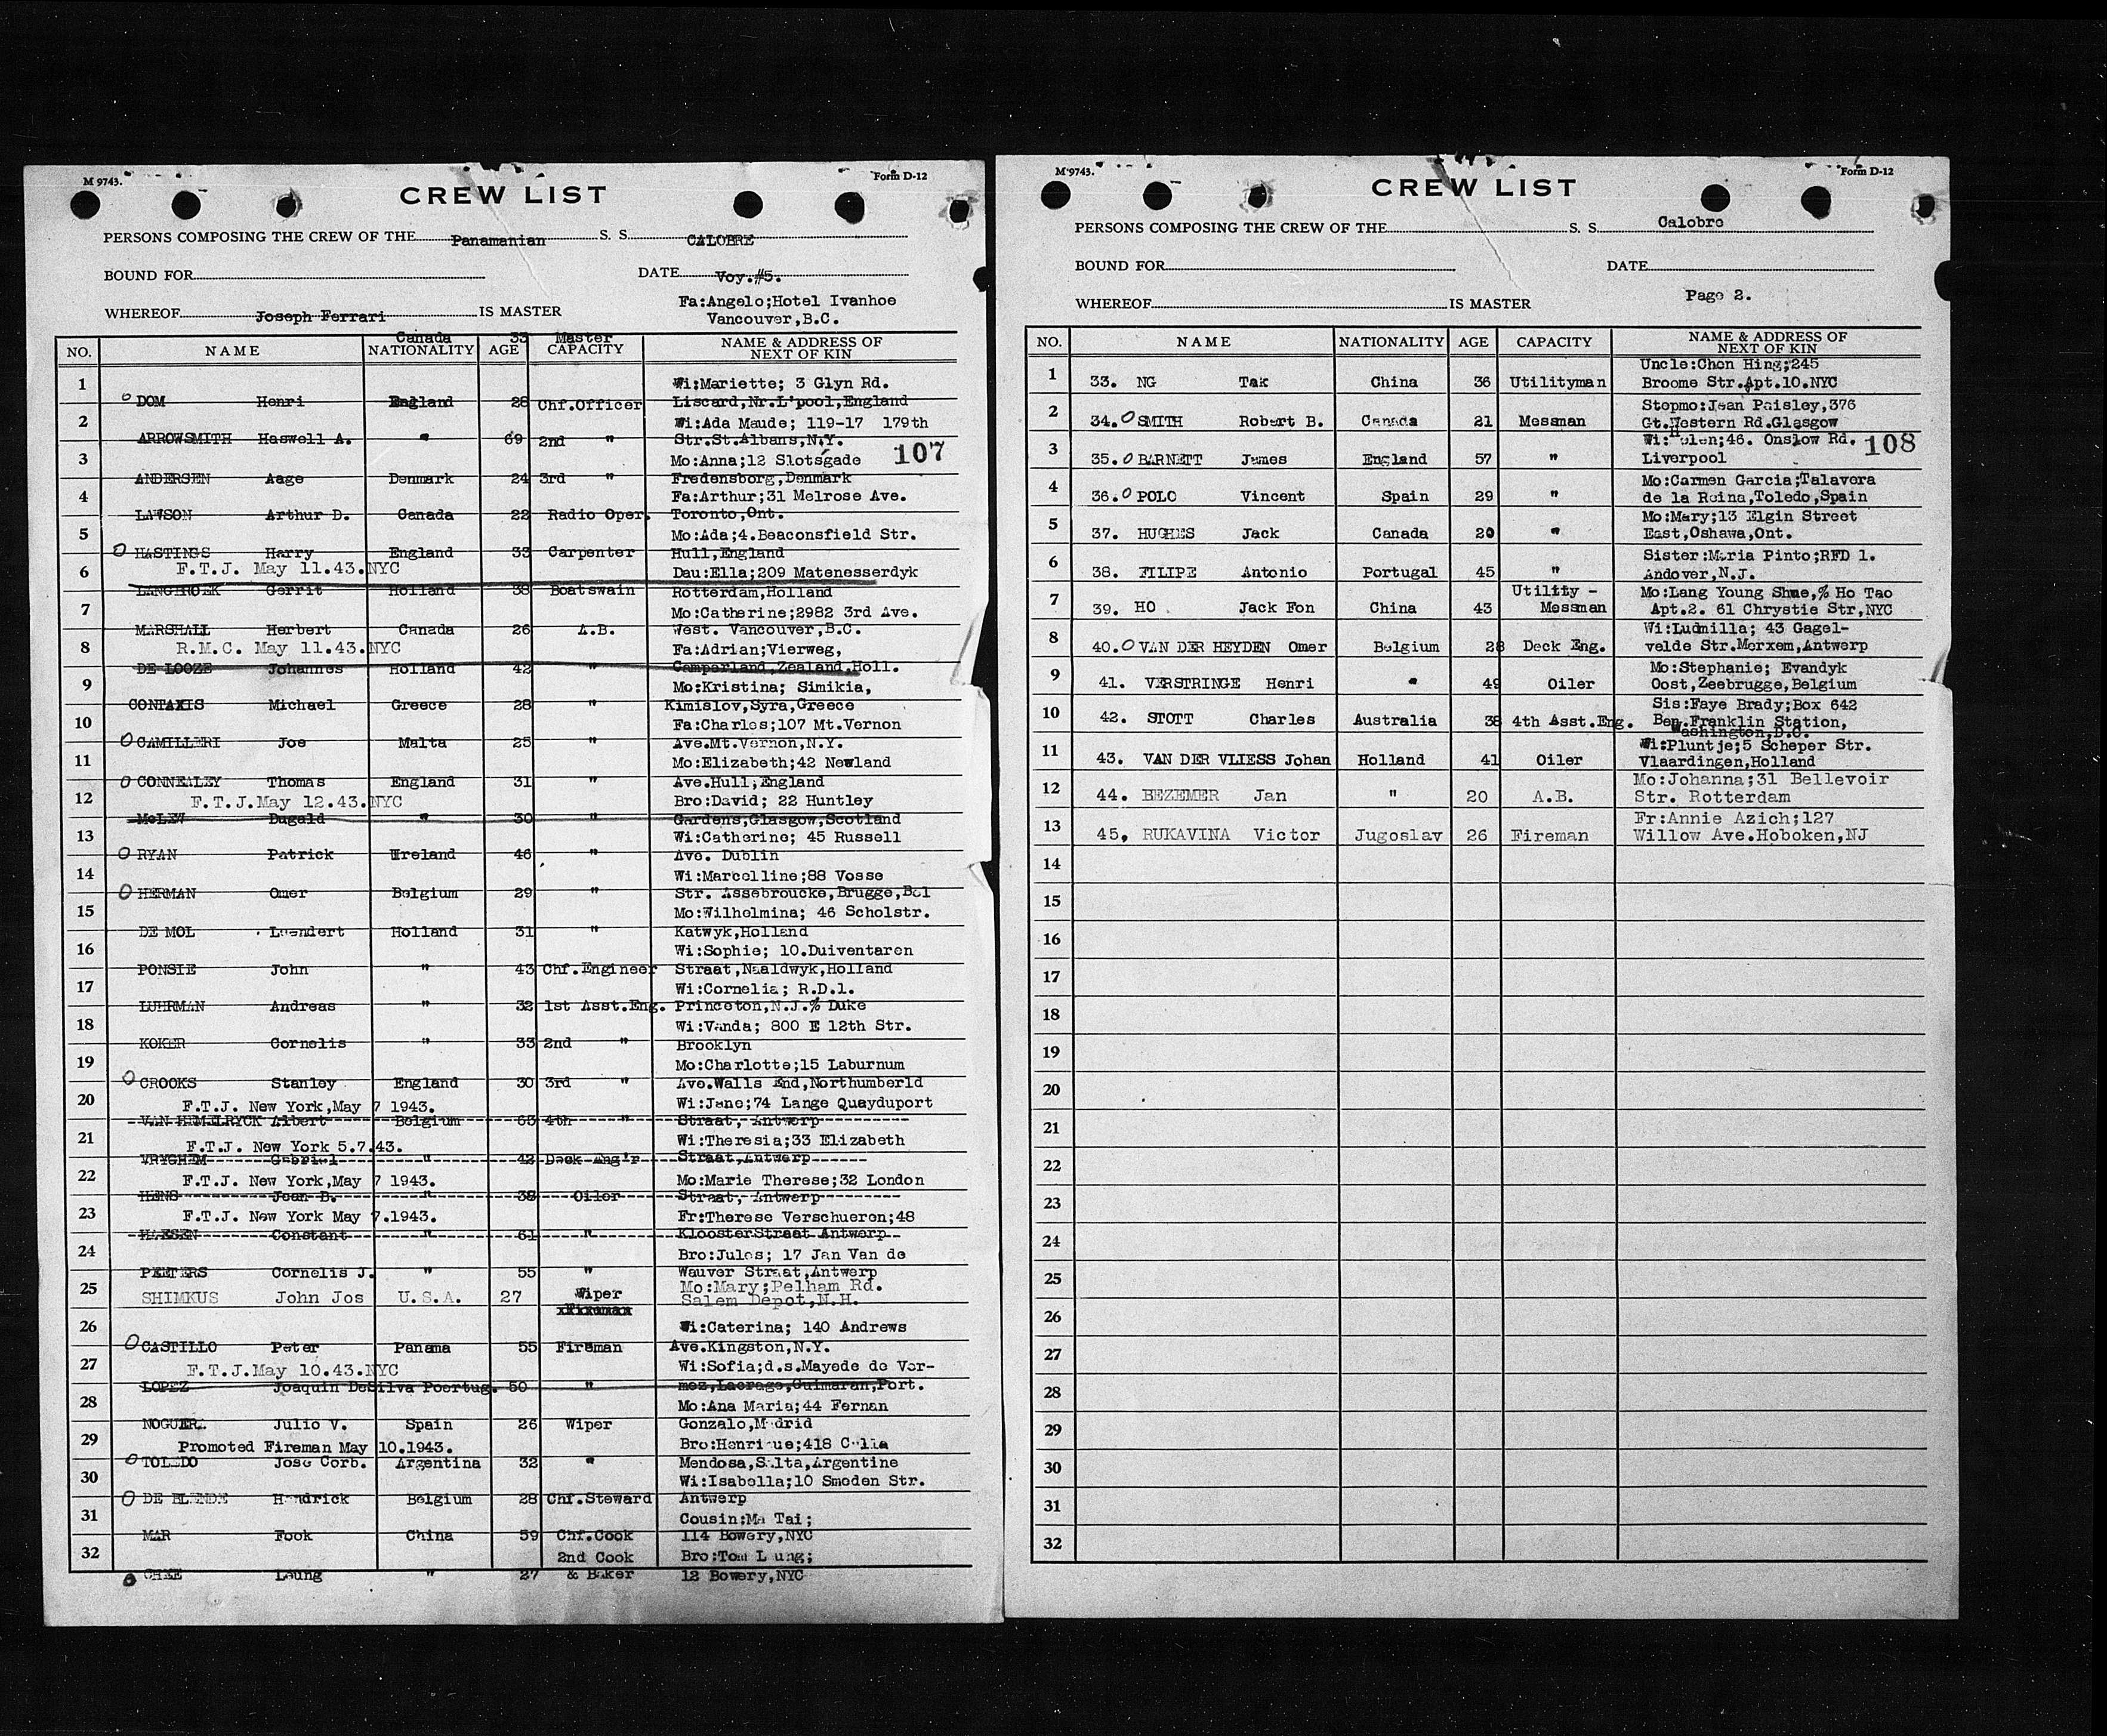 M 9743.
Form D-12
CREW LIST
PERSONS COMPOSING THE CREW OF THE Panamanian S. S. CALOBRE
BOUND FOR DATE Voy.#5.
WHEREOF Joseph Ferrari IS MASTER Fa:Angelo;Hotel Ivanhoe
Vancouver,B.C.
Canada 33 Master
NO. NAME NATIONALITY AGE CAPACITY NAME & ADDRESS OF
NEXT OF KIN
1 Wi:Mariette; 3 Glyn Rd.
DOM Henri England 28 Chf.Officer Liscard,Nr.L'pool,England
2 Wi:Ada Maude; 119-17 179th
ARROWSMITH Haswell A. " 69 2nd " Str.St.Albans,N.Y.
107
3 Mo:Anna;12 Slotsgade
ANDERSEN Aage Denmark 24 3rd " Fredensborg,Denmark
4 Fa:Arthur;31 Melrose Ave.
LAWSON Arthur D. Canada 22 Radio Oper. Toronto,Ont.
5 Mo:Ada;4.Beaconsfield Str.
HASTINGS Harry England 33 Carpenter Hull,England
6 F.T.J. May 11.43.NYC Dau:Ella;209 Matenesserdyk
LANGBROEK Gerrit Holland 38 Boatswain Rotterdam,Holland
7 Mo:Catherine;2982 3rd Ave.
MARSHALL Herbert Canada 26 A.B. West. Vancouver,B.C.
8 R.M.C. May 11.43.NYC Fa:Adrian;Vierweg,
DE LOOZE Johannes Holland 42 " Camperland,Zealand,Holl.
9 Mo:Kristina; Simikia,
CONTAXIS Michael Greece 28 " Kimislov,Syra,Greece
10 Fa:Charles;107 Mt.Vernon
CAMILLERI Joe Malta 25 " Ave.Mt.Vernon,N.Y.
11 Mo:Elizabeth;42 Newland
CONNEALEY Thomas England 31 " Ave.Hull,England
12 F.T.J.May 12.43.NYC Bro:David; 22 Huntley
McLEW Dugald " 30 " Gardens,Glasgow,Scotland
13 Wi:Catherine; 45 Russell
RYAN Patrick Ireland 46 " Ave. Dublin
14 Wi:Marcelline;88 Vosse
HERMAN Omer Belgium 29 " Str. Assebroucke,Brugge,Bel
15 Mo:Wilhelmina; 46 Scholstr.
DE MOL Leendert Holland 31 " Katwyk,Holland
16 Wi:Sophie; 10.Duiventaren
PONSIE John " 43 Chf.Engineer Straat,Naaldwyk,Holland
17 Wi:Cornelia; R.D.1.
LUHRMAN Andreas " 32 1st Asst.Eng. Princeton,N.J.% Duke
18 Wi:Vanda; 800 E 12th Str.
KOKER Cornelis " 33 2nd " Brooklyn
19 Mo:Charlotte;15 Laburnum
CROOKS Stanley England 30 3rd " Ave.Walls End,Northumberld
20 F.T.J. New York,May 7 1943. Wi:Jane;74 Lange Quayduport
VAN HEMELRYCK Albert Belgium 63 4th " Straat, Antwerp
21 F.T.J. New York 5.7.43. Wi:Theresia;33 Elizabeth
VRYGHEM Gabriel " 42 Deck Eng'r Straat,Antwerp
22 F.T.J. New York,May 7 1943. Mo:Marie Therese;32 London
HENS Jean B. " 38 Oiler Straat, Antwerp
23 F.T.J. New York May 7.1943. Fr:Therese Verschueren;48
HAESEN Constant " 61 " KloosterStraat Antwerp
24 Bro:Jules; 17 Jan Van de
PEETERS Cornelis J. " 55 " Wauver Straat,Antwerp
25 SHIMKUS John Jos U.S.A. 27 Wiper Mo:Mary;Pelham Rd.
Fireman Salem Depot,N.H.
26 Wi:Caterina; 140 Andrews
CASTILLO Peter Panama 55 Fireman Ave.Kingston,N.Y.
27 F.T.J.May 10.43.NYC Wi:Sofia;d.s.Mayede de Ver-
LOPEZ Joaquin DeSilva Poertug. 50 " mez,Lacrage,Guimaran,Port.
28 Mo:Ana Maria;44 Fernan
NOGUERA Julio V. Spain 26 Wiper Gonzalo,Madrid
29 Promoted Fireman May 10.1943. Bro:Henrique;418 Calla
TOLEDO Jose Corb. Argentina 32 " Mendosa,Salta,Argentine
30 Wi:Isabella;10 Smeden Str.
DE ELENDE Hendrick Belgium 28 Chf.Steward Antwerp
31 Cousin:Ma Tai;
MAR Fook China 59 Chf.Cook 114 Bowery,NYC
32 2nd Cook Bro:Tom Leung;
CHEE Leung " 27 & Baker 12 Bowery,NYC
M 9743.
Form D-12
CREW LIST
PERSONS COMPOSING THE CREW OF THE S. S. Calobre
BOUND FOR DATE
WHEREOF IS MASTER Page 2.
NO. NAME NATIONALITY AGE CAPACITY NAME & ADDRESS OF
NEXT OF KIN
Uncle:Chon Hing;245
1 33. NG Tak China 36 Utilityman Broome Str.Apt.10.NYC
Stepmo:Jean Paisley,376
2 34. SMITH Robert B. Canada 21 Messman Gt.Western Rd.Glasgow
Wi:Helen;46. Onslow Rd.
108
3 35. BARNETT James England 57 " Liverpool
Mo:Carmen Garcia;Talavera
4 36. POLO Vincent Spain 29 " de la Reina,Toledo,Spain
Mo:Mary;13 Elgin Street
5 37. HUGHES Jack Canada 20 " East,Oshawa,Ont.
Sister:Maria Pinto;RFD 1.
6 38. FILIPE Antonio Portugal 45 " Andover,N.J.
Utility - Mo:Lang Young Shue,% Ho Tao
7 39. HO Jack Fon China 43 Messman Apt.2. 61 Chrystie Str,NYC
Wi:Ludmilla; 43 Gagel-
8 40. VAN DER HEYDEN Omer Belgium 28 Deck Eng. velde Str.Merxem,Antwerp
Mo:Stephanie; Evandyk
9 41. VERSTRINGE Henri " 49 Oiler Oost,Zeebrugge,Belgium
Sis:Faye Brady;Box 642
10 42. STOTT Charles Australia 38 4th Asst.Eng. Ben.Franklin Station,
Washington,D.C.
Wi:Pluntje;5 Scheper Str.
11 43. VAN DER VLIESS Johan Holland 41 Oiler Vlaardingen,Holland
Mo:Johanna;31 Bellevoir
12 44. BEZEMER Jan " 20 A.B. Str. Rotterdam
Fr:Annie Azich;127
13 45, RUKAVINA Victor Jugoslav 26 Fireman Willow Ave.Hoboken,NJ
14
15
16
17
18
19
20
21
22
23
24
25
26
27
28
29
30
31
32